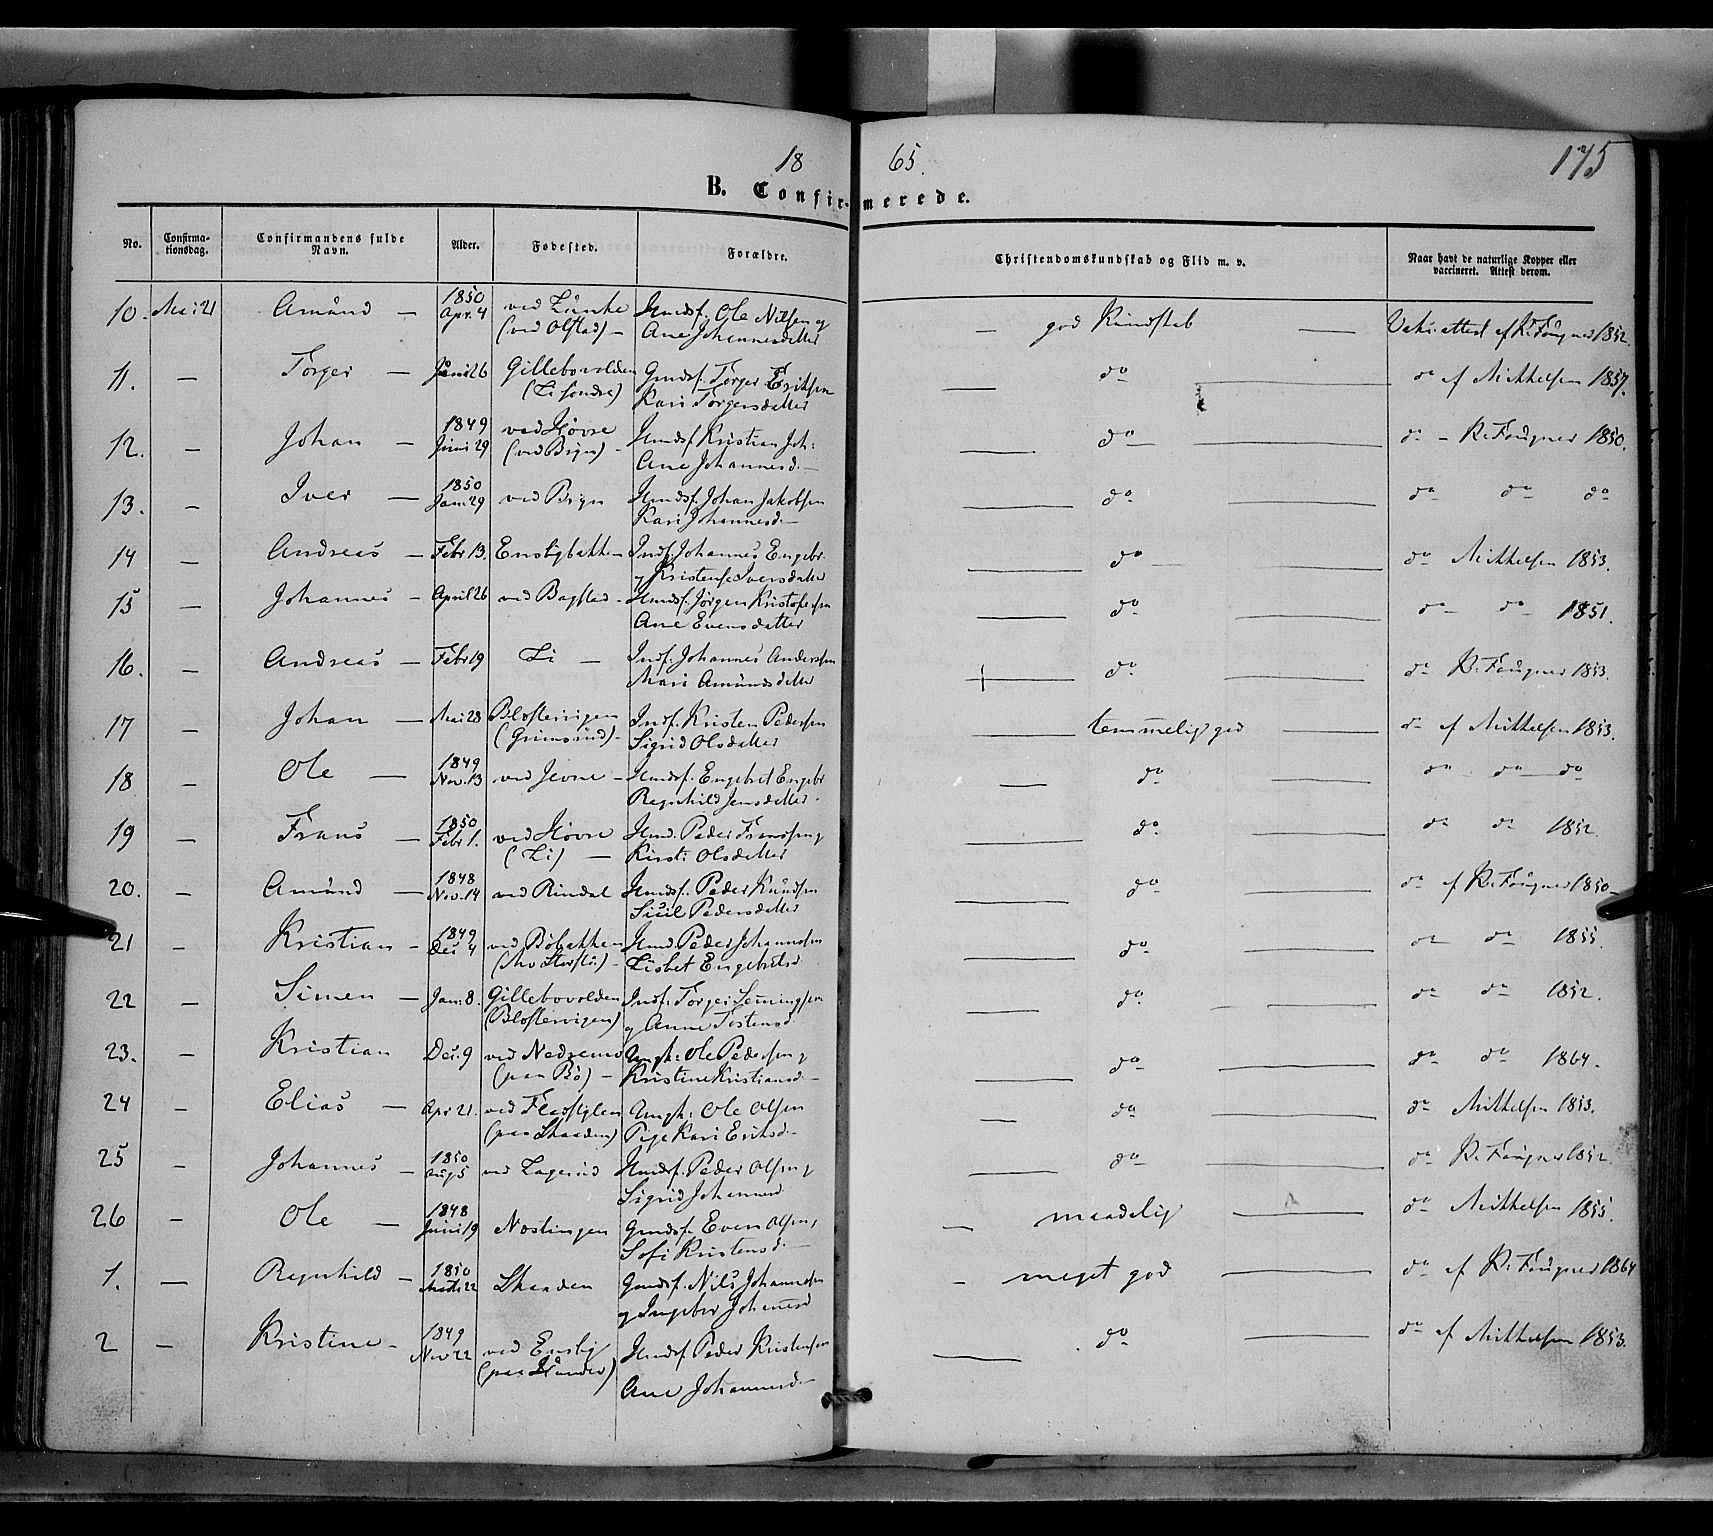 18 65.
175
B. Confirmerede.
No. Confirma-tionsdag. Confirmandens fulde Navn. Alder. Fødested. Forældre. Christendomskundskab og Flid m. v. Naar havt de naturlige Kopper eller vaccineret. Attest derom.
10. Mai 21 Amund — 1850 Apr. 4 ved Lunke (ved Olstad) — Huusf. Ole Nilsen og Ane Johannesdatter — god Kundskab — Vakc.attest af R. Fougner 1852.
11. — Torger — Juni 26 Gillebovolden (Li søndre) Gmdsf. Torger Eriksen Kari Torgersdatter — do — do af Mikkelsen 1857.
12. — Johan — 1849 Juni 29 ved Høvre (ved Bryn) — Huusf. Kristian Joh: Ane Johannesd. — do — do — R. Fougner 1850.
13. — Iver — 1850 Jan. 29 ved Bryn Huusf. Johan Jakobsen Kari Johannesd. — do — do do do
14 — Andreas — Febr 13. Enstigbakken Indf. Johannes Engebr. og Kristense Iversdatter — do — do Mikkelsen 1853.
15 — Johannes — April 26 ved Bagstad — Huusf. Jørgen Kristofersen Ane Evensdatter — do — do do 1851.
16. — Andreas — Febr 19 Li — Indf. Johannes Andersen Mari Amundsdatter — do — do R. Fougner 1853.
17 — Johan — Mai 28 Blostervigen (Grimsrud) — Indf. Kristen Pedersen Sigrid Olsdatter — temmelig god — do af Mikkelsen 1853.
18 — Ole — 1849 Nov. 13 ved Jevne — Huusf. Engebret Engebr. Regnhild Jensdatter. — do — do do do
19 — Frans — 1850 Febr 1. ved Høvre (Li) — Huusf. Peder Fransen og Kirsti Olsdatter — do — do do 1852.
20. — Amund — 1848 Nov. 14 ved Rindal Huusf. Peder Knudsen Sicil Pedersdatter — do — do af R. Fougner 1850 —
21 — Kristian — 1849 Dec 4 ved Bøbakken Huusf. Peder Johannesen Lisbet Engebretsd — do — do do 1855.
22 — Simen — Jan. 8. Gillebovolden (Blostervigen) Indf. Torger Simensen og Anne Tostensd. — do — do do 1852.
23. — Kristian Dec. 9 ved Nedremo (paa Bø) — Ungk. Ole Pedersen og Kristine Kristiansd — — do — do do 1864.
24 — Elias — Apr 21. ved (paa Skaaden) Ungk. Ole Olsen Pige Kari Eriksd. — — do — do Mikkelsen 1853.
25 — Johannes — 1850 Aug 5 ved Lagerud Huusf. Peder Olsen og Sigrid Johannesd. — do — do R. Fougner 1852.
26 — Ole — 1848 Juni 19 Nostingen Gmdsf. Even Olsen, Sofi Kristensd. — — maadelig — do Mikkelsen 1855.
1. — Regnhild — 1850 Marts 22 Skaaden Gmdsf. Nils Johannesen og Ingeber Johannesd — meget god — do af R. Fougner 1864
2 — Kristine — 1849 Nov 22 ved Enstig (paa Hunder) Huusf. Peder Kristensen Ane Johannesd. — — do — do af Mikkelsen 1853.